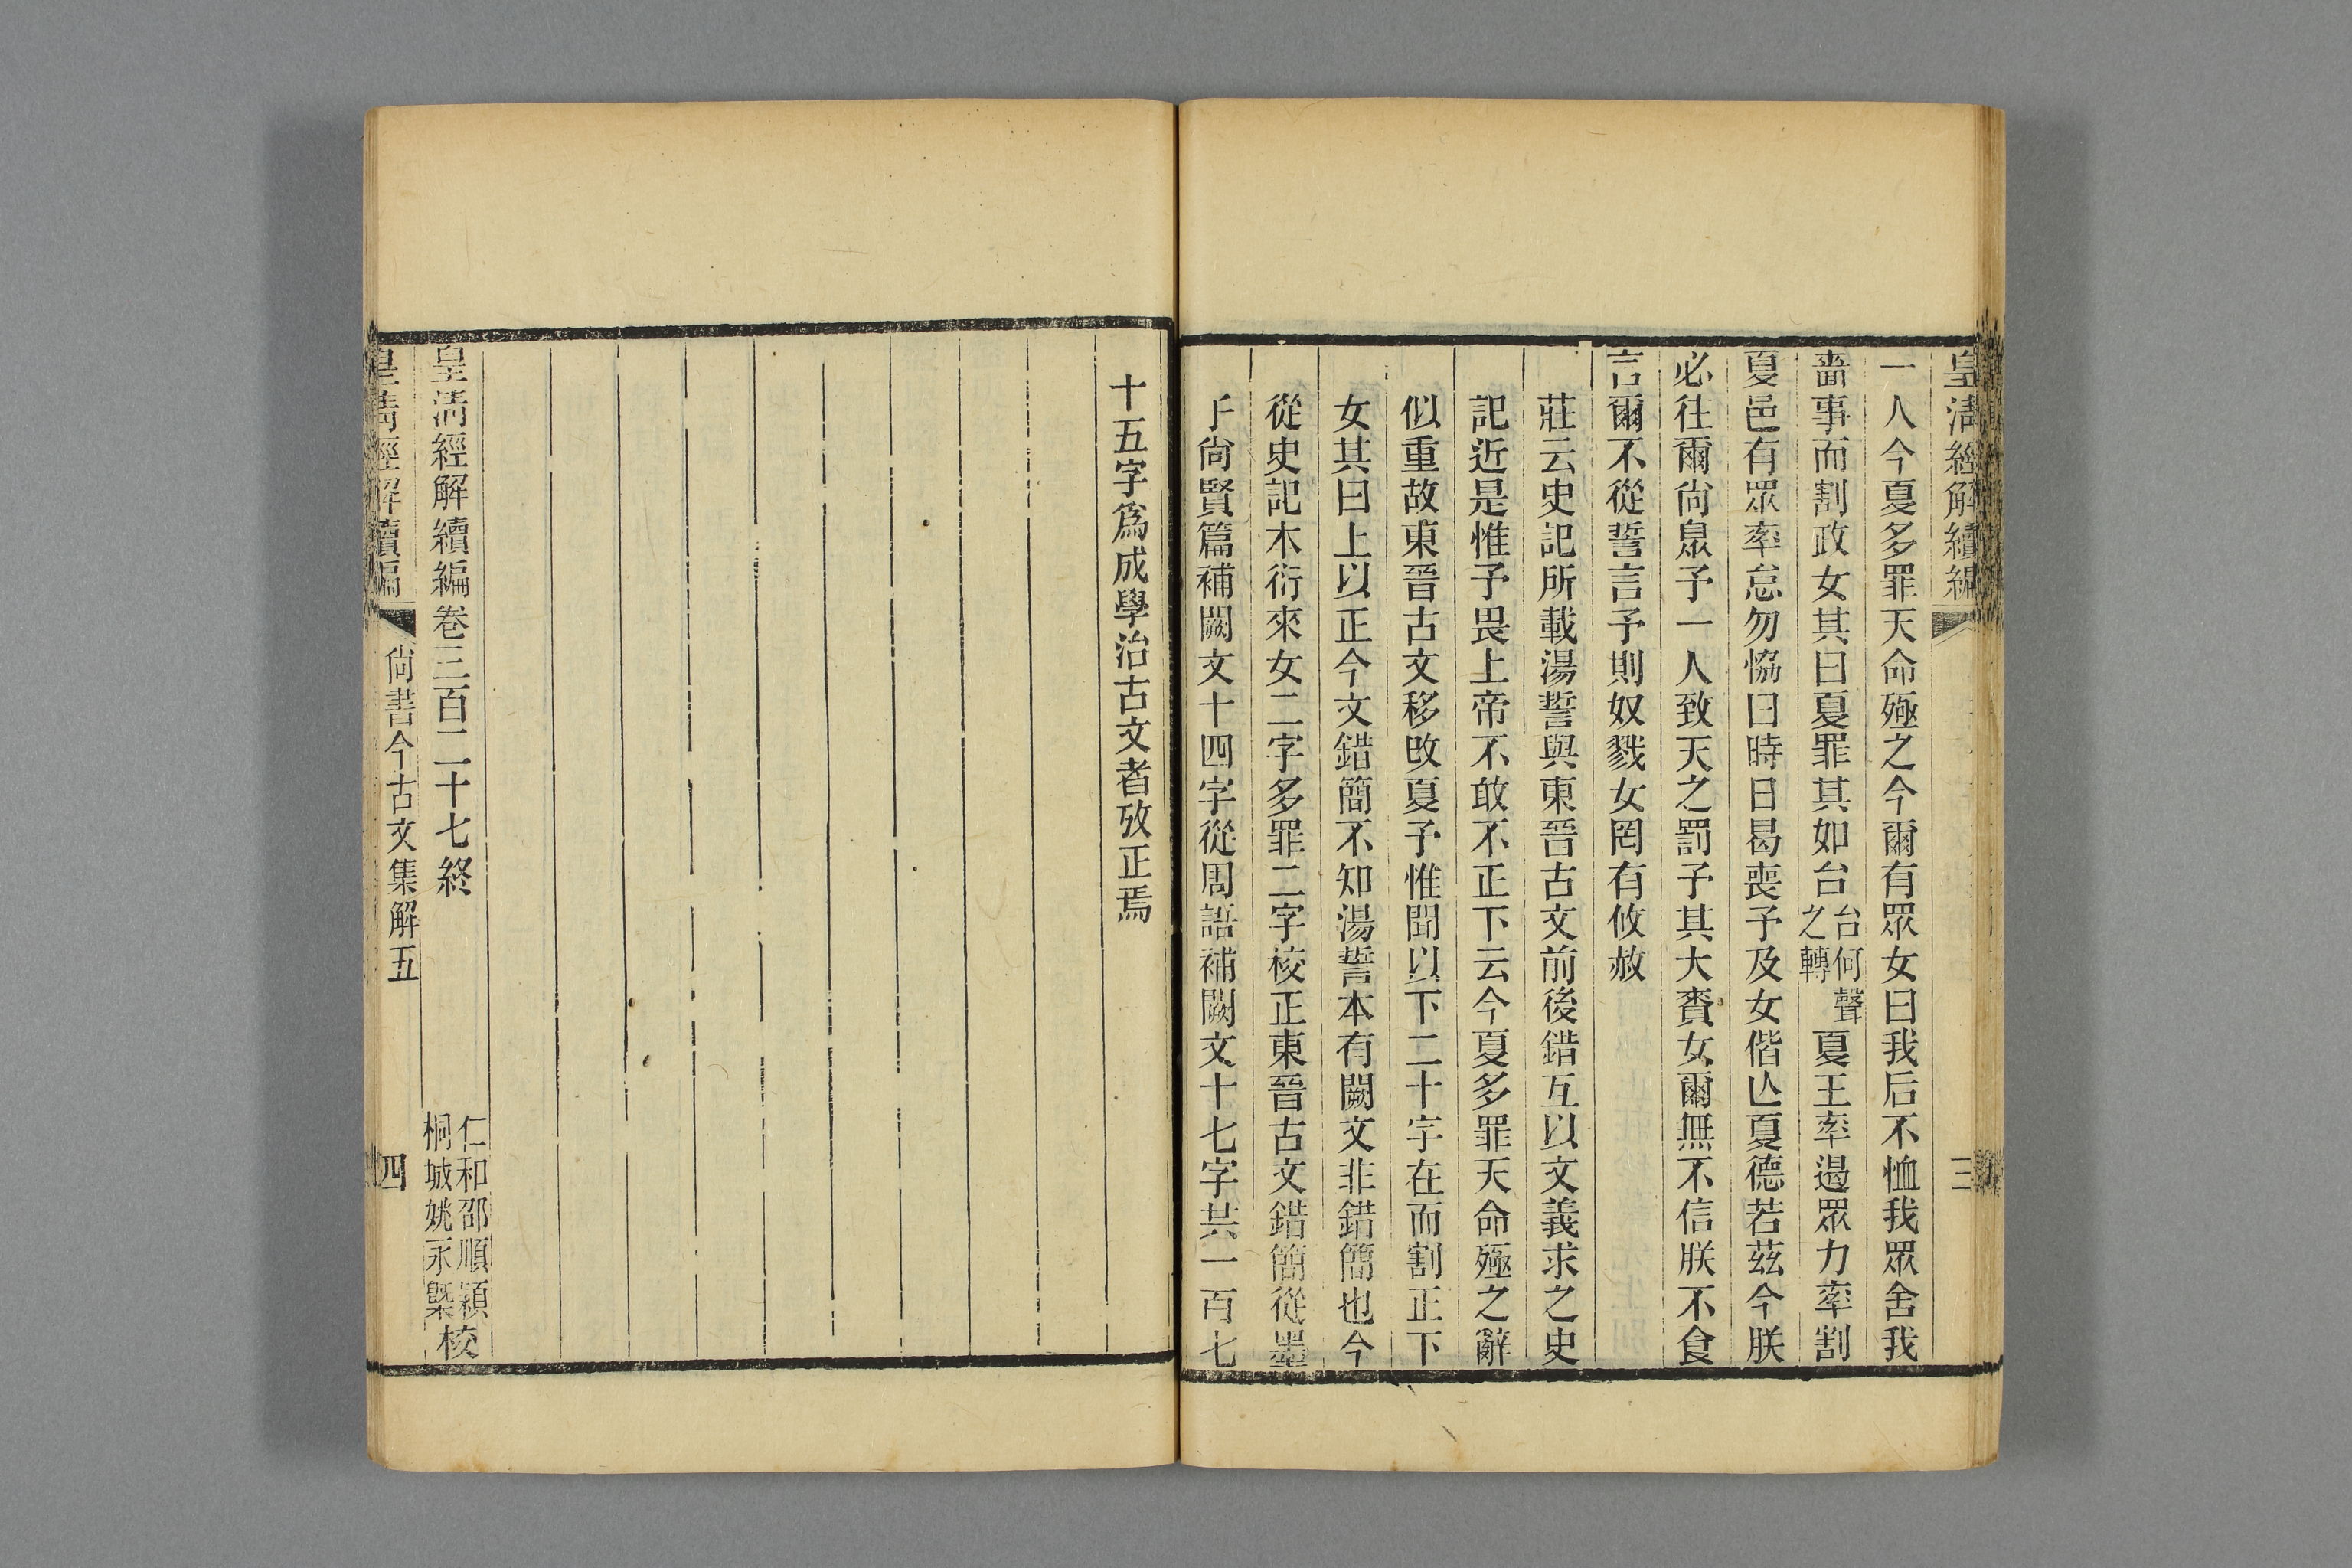 皇淸經解續編
三
一人今夏多罪天命殛之今爾有眾女曰我后不恤我眾舍我
嗇事而割政女其曰夏罪其如台台何聲之轉夏王率遏眾力率割
夏邑有眾率怠勿恊曰時日曷喪予及女偕亾夏德若茲今朕
必往爾尙臮予一人致天之罰予其大賚女爾無不信朕不食
言爾不從誓言予則奴戮女罔有攸赦
莊云史記所載湯誓與東晉古文前後錯互以文義求之史
記近是惟予畏上帝不敢不正下云今夏多罪天命殛之辭
似重故東晉古文移改夏予惟聞以下二十字在而割正下
女其曰上以正今文錯簡不知湯誓本有闕文非錯簡也今
從史記木衍來女二字多罪二字校正東晉古文錯簡從墨
子尙賢篇補闕文十四字從周語補闕文十七字共一百七
十五字爲成學治古文者攷正焉
皇淸經解續編卷三百二十七終
仁和邵順穎
桐城姚永㮣校
皇淸經解續編
尙書今古文集解五
四